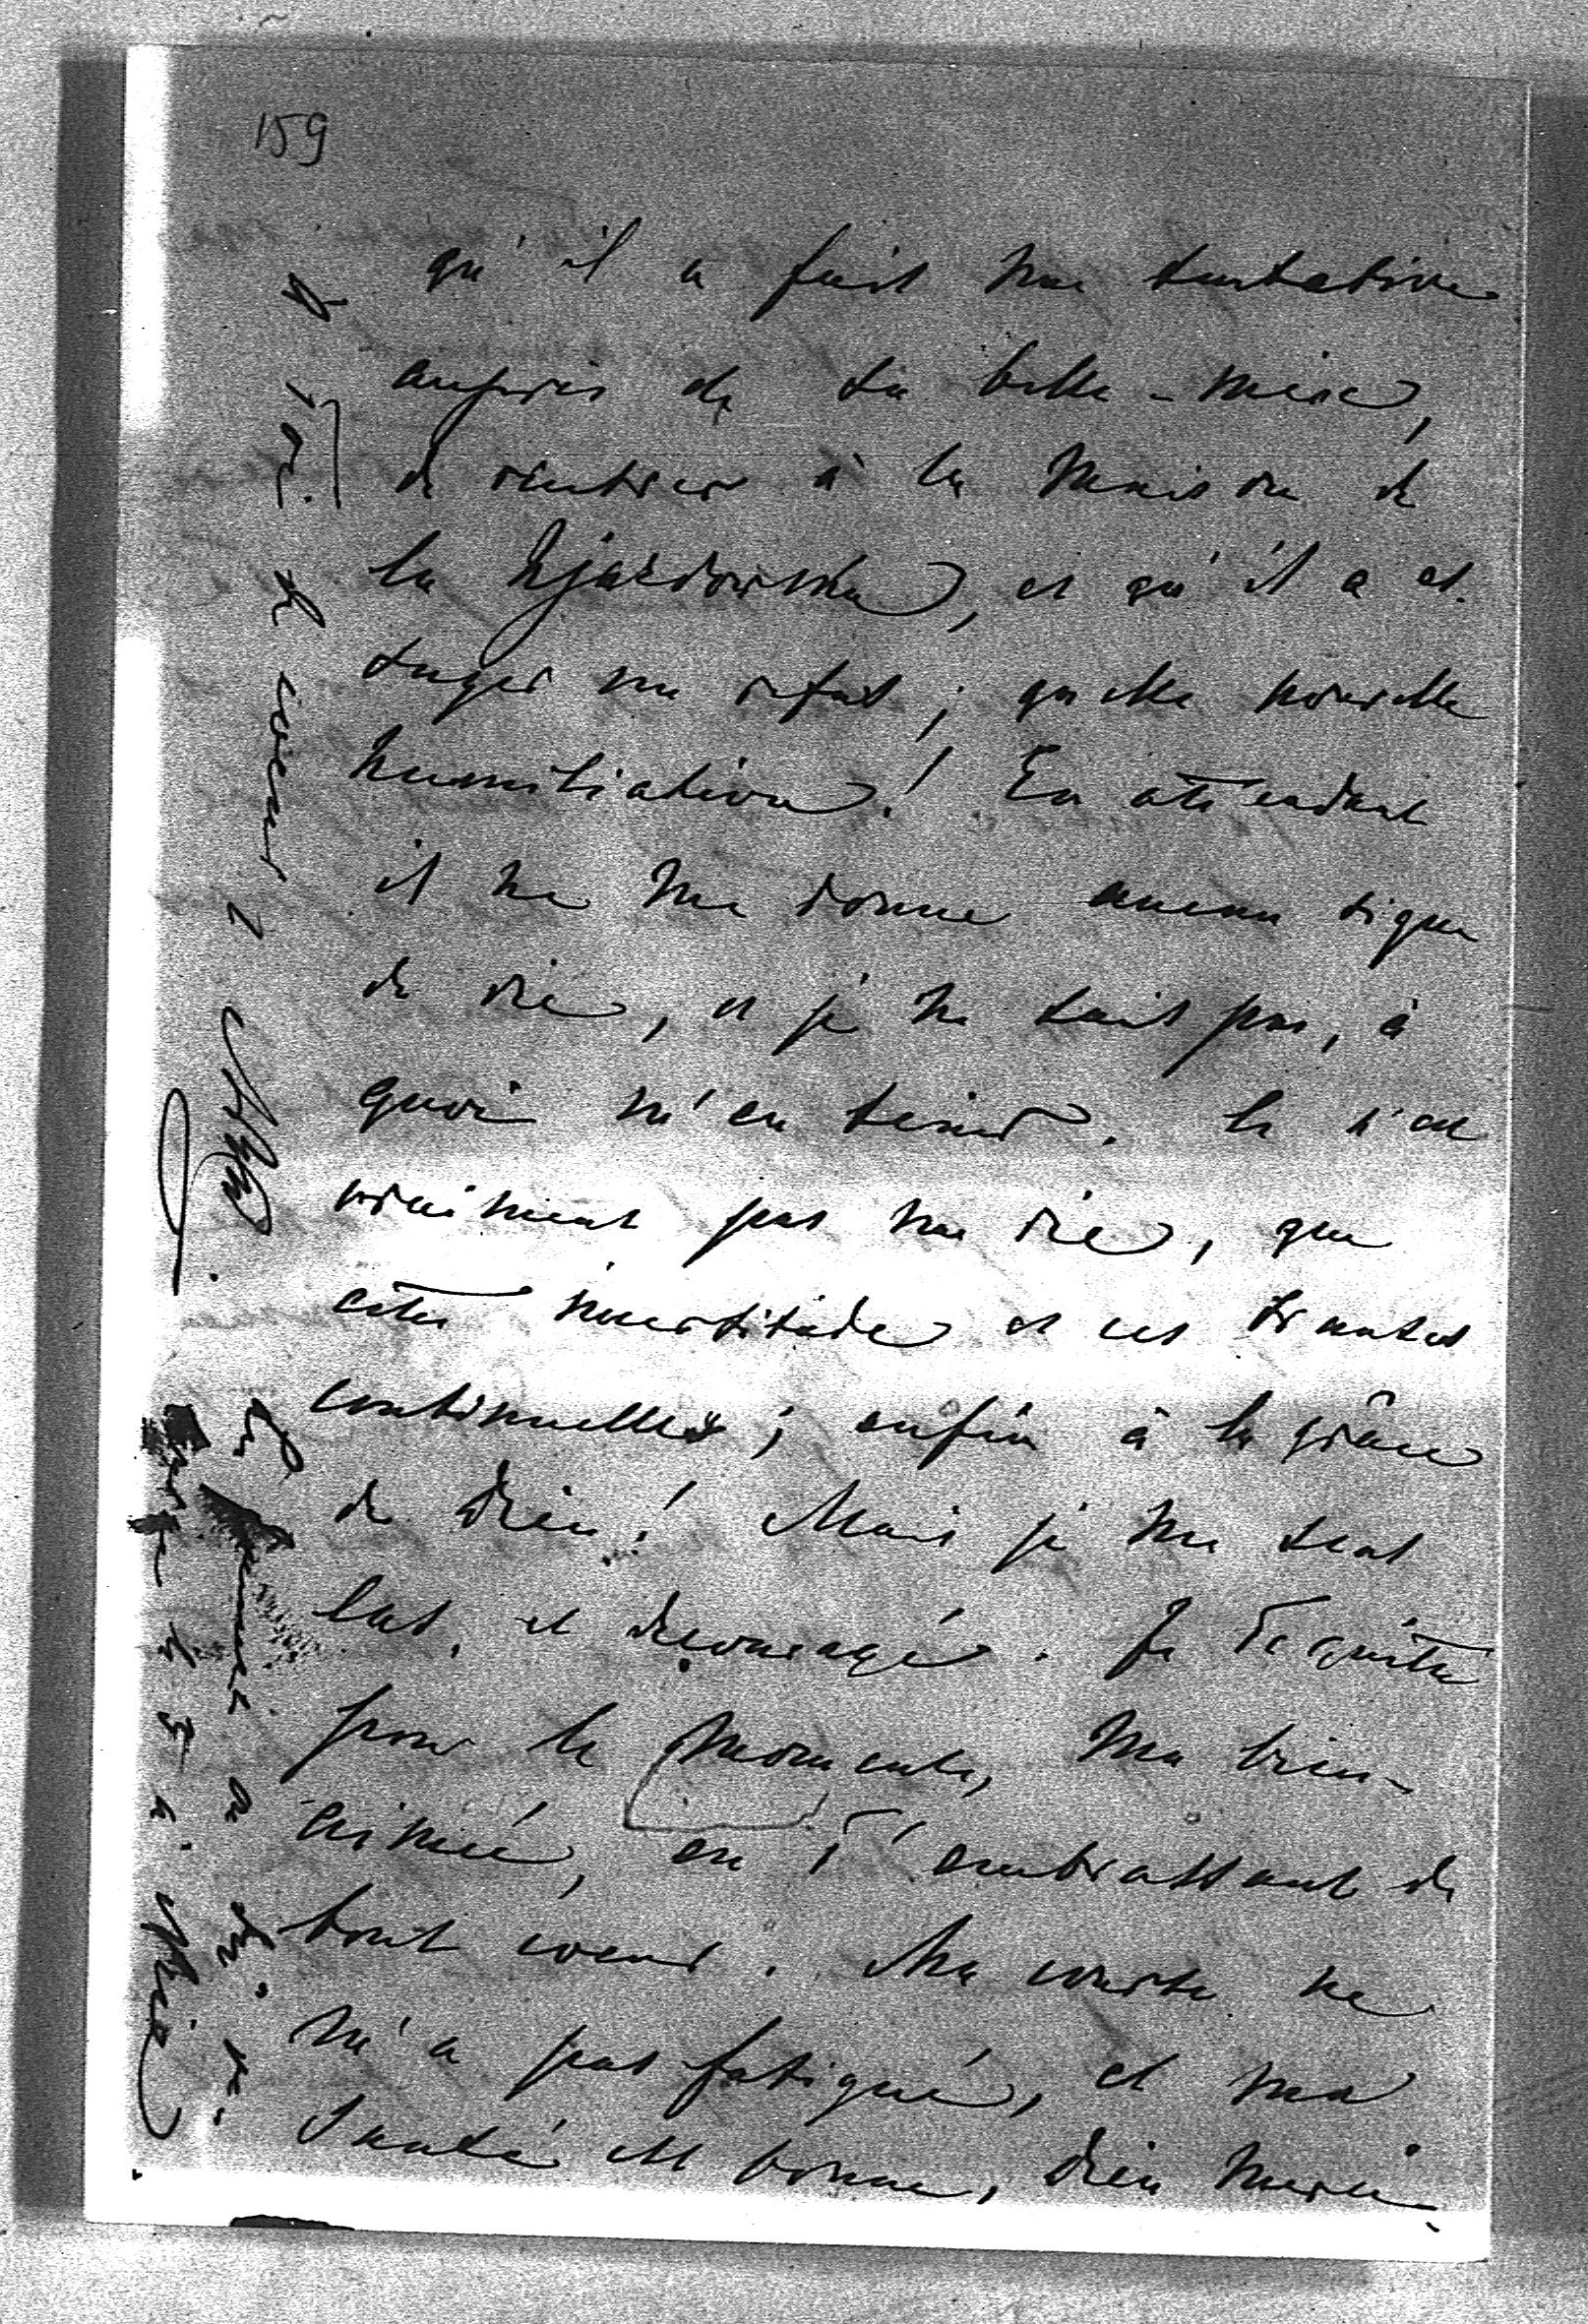 159
qu'il a fait une tentative
auprès de sa belle-mère,
de rentrer à la maison de
la Ujazdowska, et qu'il a es-
suyer un refus; quelle nouvelle
humiliation! En attendant
il ne me donne aucun signe
de vie, et je ne sais pas, à
quoi m'en tenir. Ce n'est
vraiment pas une vie, que
cette incertitude et ces transes
continuelles; enfin à la grâce
de Dieu! Mais je me sens
las, et découragé. Je Te quitte
pour le moment, ma bien-
aimée, en T'embrassant de
tout coeur. Ma course ne
m'a pas fatigué, et ma
santé est bonne, Dieu merci
de coeur